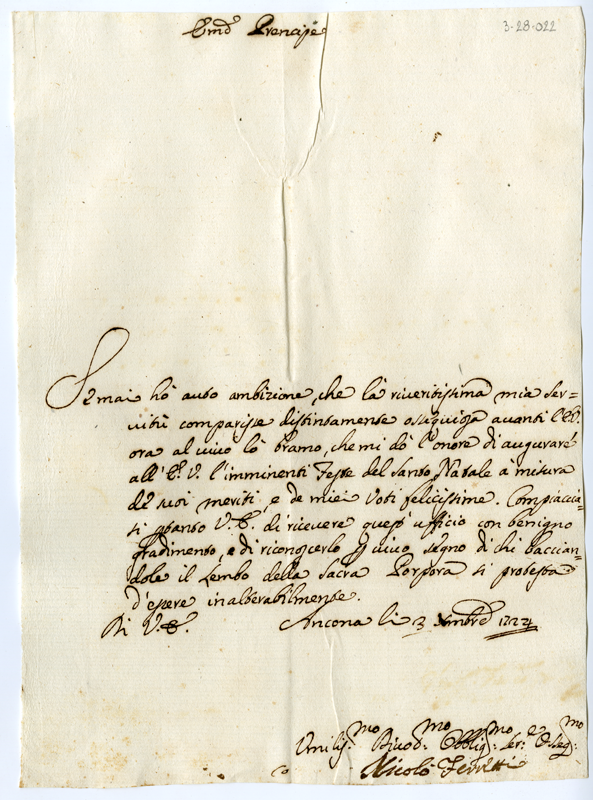 Em̃o Prencipe
3-28-022
Se mai hò auto ambizione, che là riveritissima mia Ser=
vitù comparisse distintamente ossequiosa avanti l'E.V.
ora al vivo lo bramo, che mi dò l'onore di augurare
all'E. V. l'imminenti Feste del Santo Natale à misura
de suoi meriti, e de miei Voti felicissime. Compiaccia=
si pertanto V. E. di ricevere quest'ufficio con benigno
gradimento, e di riconoscerlo per vivo segno di chi baccian=
dole il Lembo della Sacra Porpora si protesta
d'essere inalterabilmente.
Di V. E. Ancona li 3 Xmbre
Umilis:mo Divod:mo Obblig:mo Ser:e Osseq:mo
Nicolò Ferretti